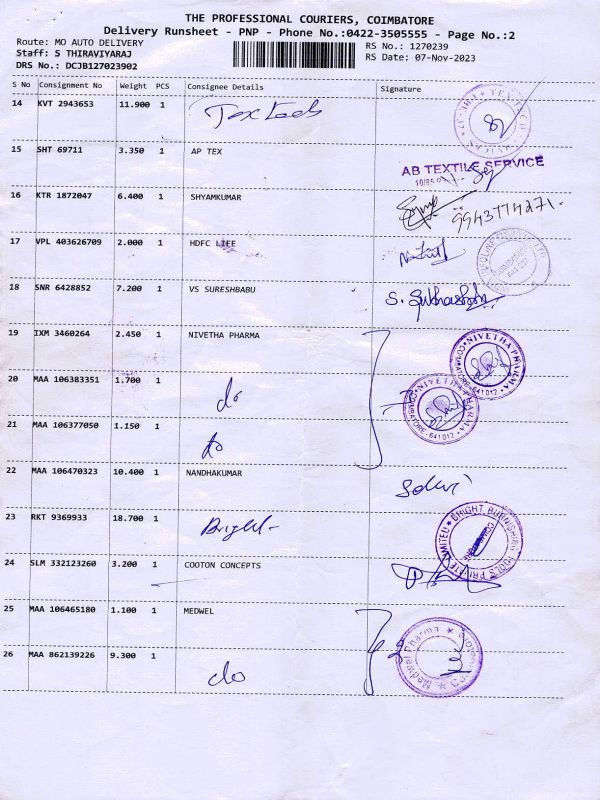 THE PROFESSIONAL COURIERS, COIMBATORE
Delivery Runsheet - PNP - Phone No.:0422-3505555 - Page No.:2
Route: MO AUTO DELIVERY
RS No.: 1270239
Staff: S THIRAVIYARAJ
RS Date: 07-Nov-2023
DRS No.: DCJB127023902
S No Consignment No Weight PCS Consignee Details Signature
14 KVT 2943653 11.900 1
15 SHT 69711 3.350 1 AP TEX
AB TEXTILE SERVICE
16 KTR 1872047 6.400 1 SHYAMKUMAR
9943774271.
17 VPL 403626709 2.000 1 HDFC LIFE
18 SNR 6428852 7.200 1 VS SURESHBABU
19 IXM 3460264 2.450 1 NIVETHA PHARMA
NIVETHA PHARMA COIMBATORE-641012
20 MAA 106383351 1.700 1 do
NIVETHA PHARMA COIMBATORE-641012
21 MAA 106377050 1.150 1 do
22 MAA 106470323 10.400 1 NANDHAKUMAR
23 RKT 9369933 18.700 1 Bright
BRIGHT BURNISHING TOOLS PRIVATE LIMITED COIMBATORE
24 SLM 332123260 3.200 1 COOTON CONCEPTS
25 MAA 106465180 1.100 1 MEDWEL
Medwel Pharma
26 MAA 862139226 9.300 1 do